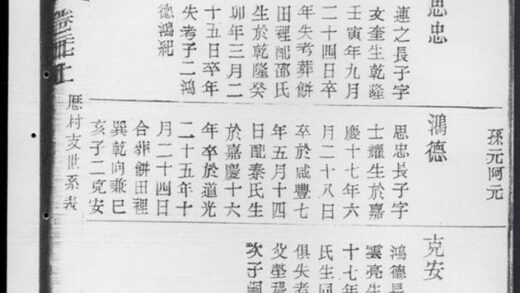 孫元阿元
思忠
連之長子字
文奎生乾隆
壬寅年九月
二十四日卒
年失考葬餅
田裡配邵氏
生於乾隆癸
卯年三月二
十五日卒年
失考子二鴻
德鴻紀
鴻德
思忠長子字
士耀生於嘉
慶十七年六
月二十八日
卒於咸豐七
年五月十四
日配秦氏生
於嘉慶十六
年卒於道光
二十五年十
月二十四日
合葬餅田裡
巽乾向兼巳
亥子二克安
克安
鴻德長
雲亮生
十七年
氏生同
俱失考
次子嗣
厯村支世系表